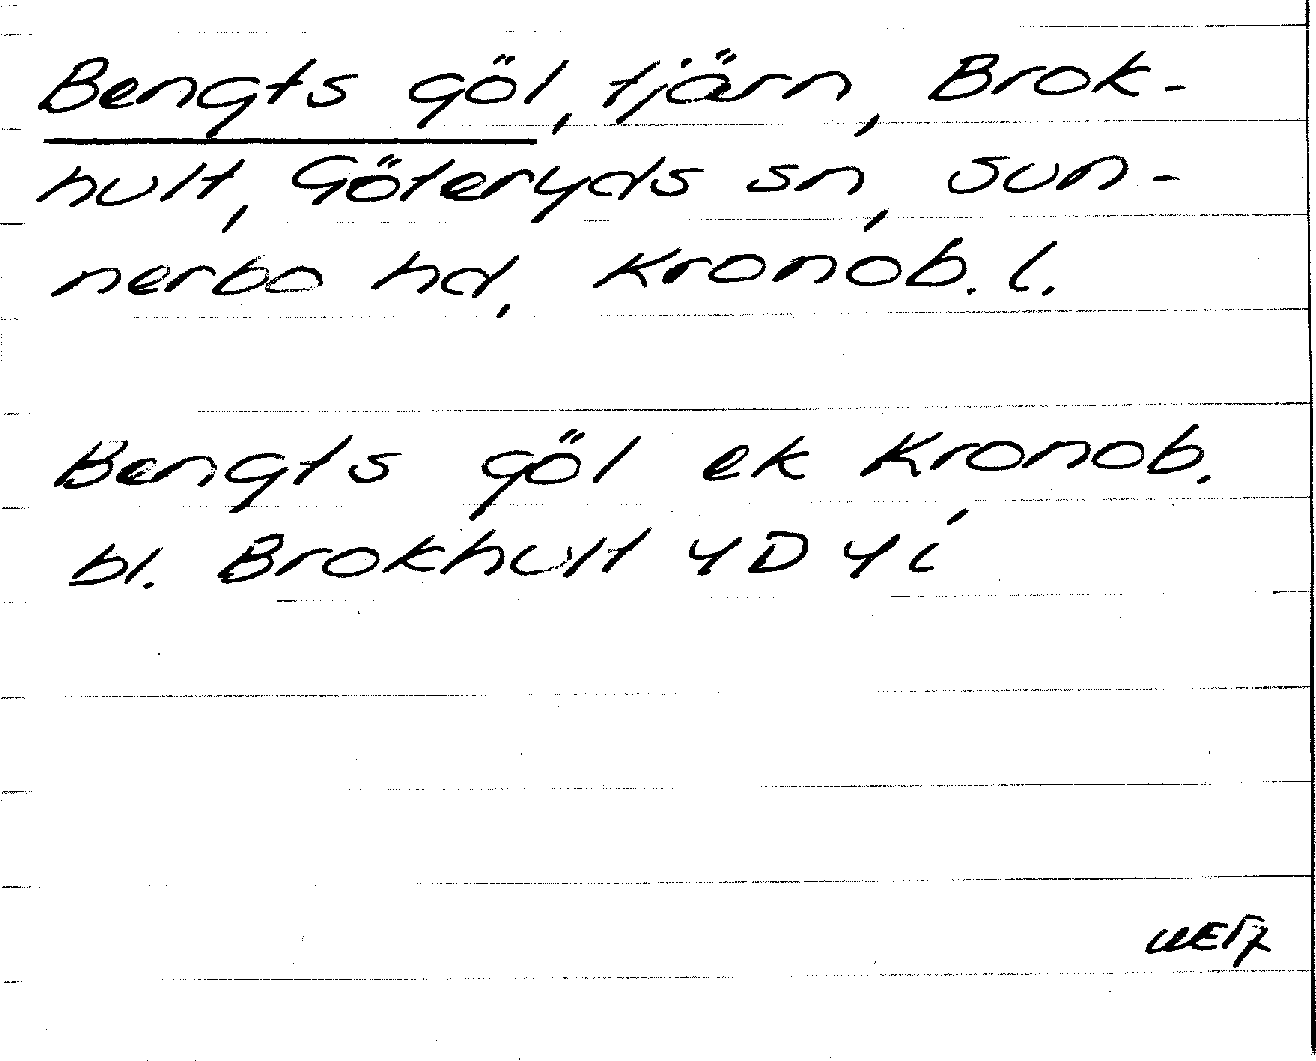 Bengts göl, tjärn, Brok-
hult, Göteryds sn, Sun-
nerbo hd, Kronob. l.
Bengts göl ek Kronob.
bl. Brokhult 4D 4i